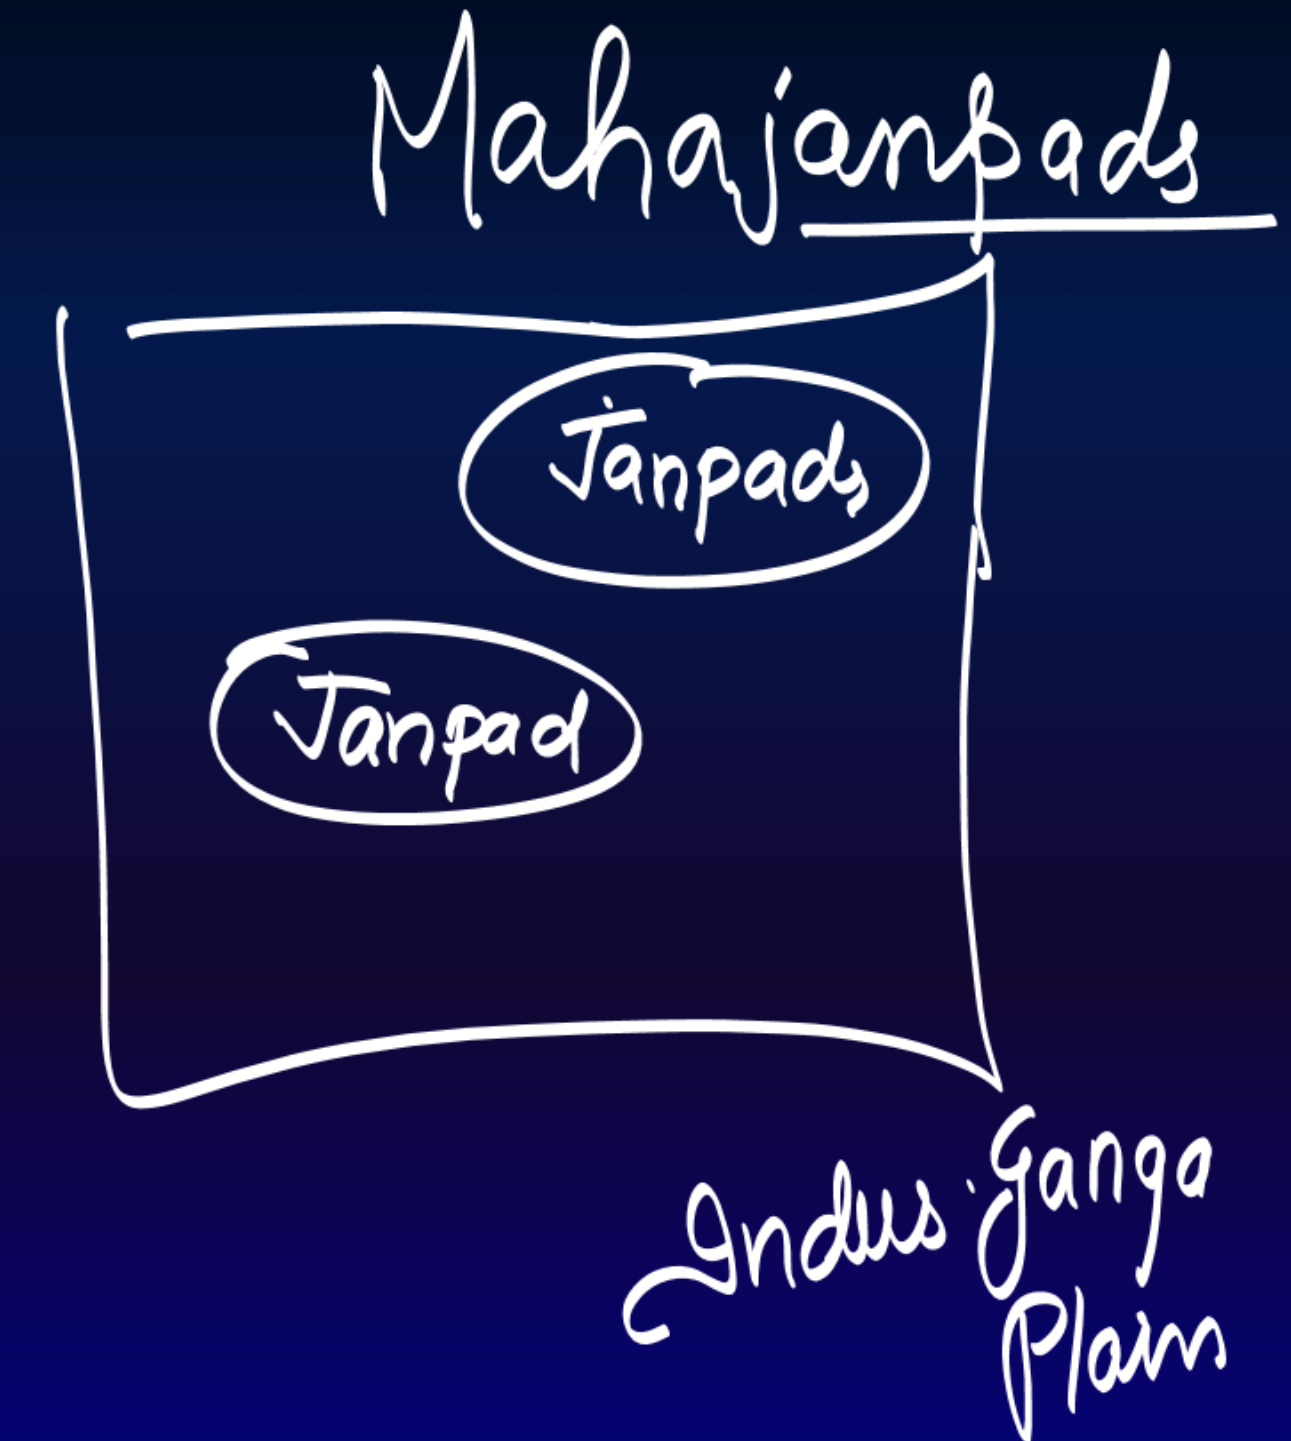 Mahajanpads
Janpads
Janpad
Indus Ganga
Plain